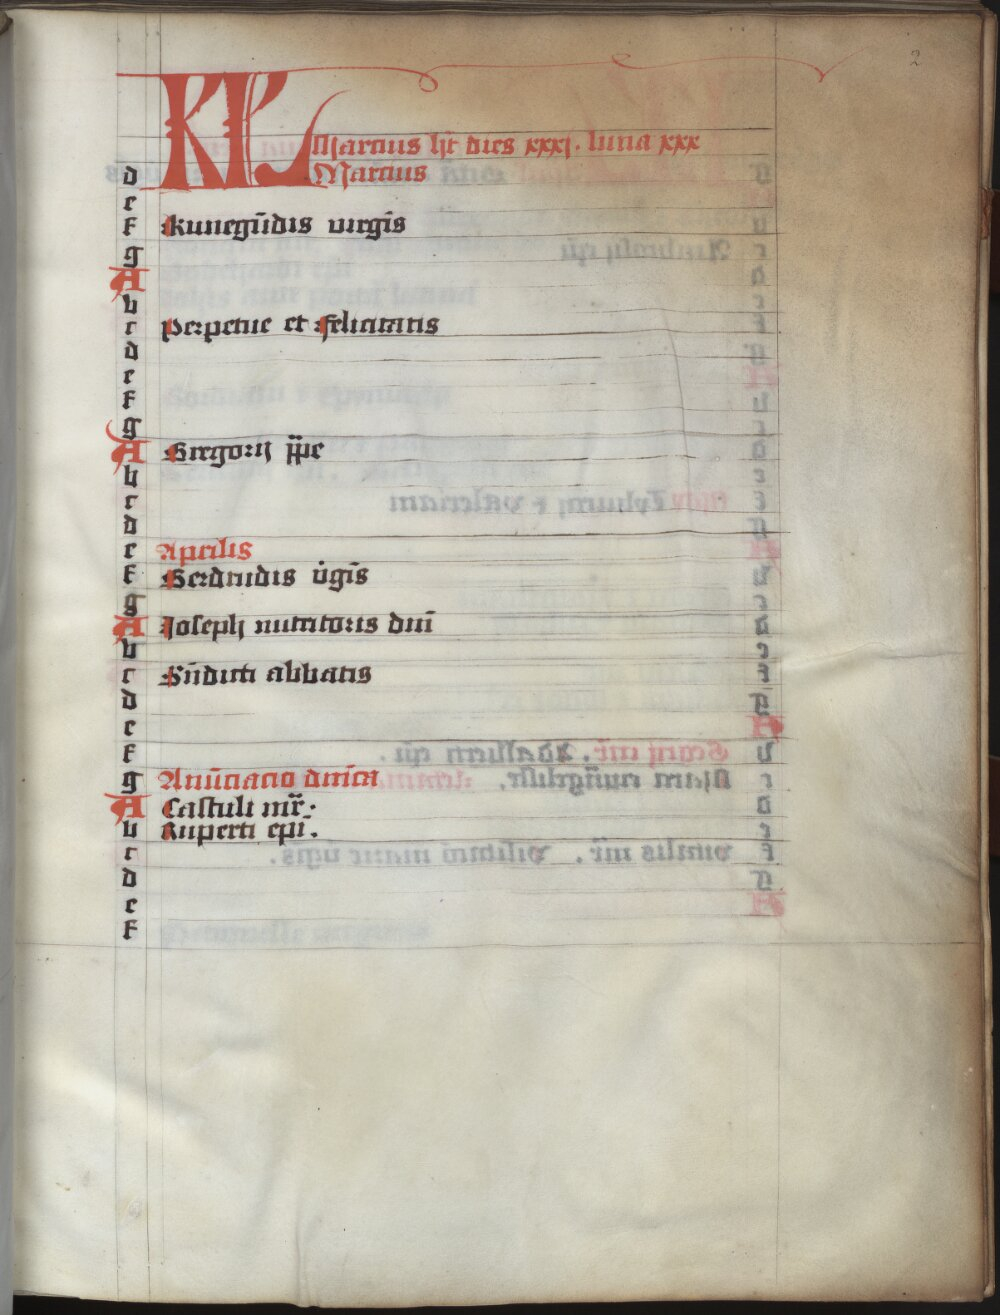 2
KL Marcius hꝫt dies xxxj. luna xxx
d Marcius
e
f Kunegūdis virgīs
g
A
b
c perpetue et felicitatis
d
e
f
g
A Gregorij ppe
b
c
d
e Aprilis
f Gerdrudis v̇gīs
g
A Joseph nutritoris dnī
b
c Bn̄dicti abbatis
d
e
f
g Anūciacio dn̄ica
A Castuli mr̄.
b Ruperti epi.
c
d
e
f